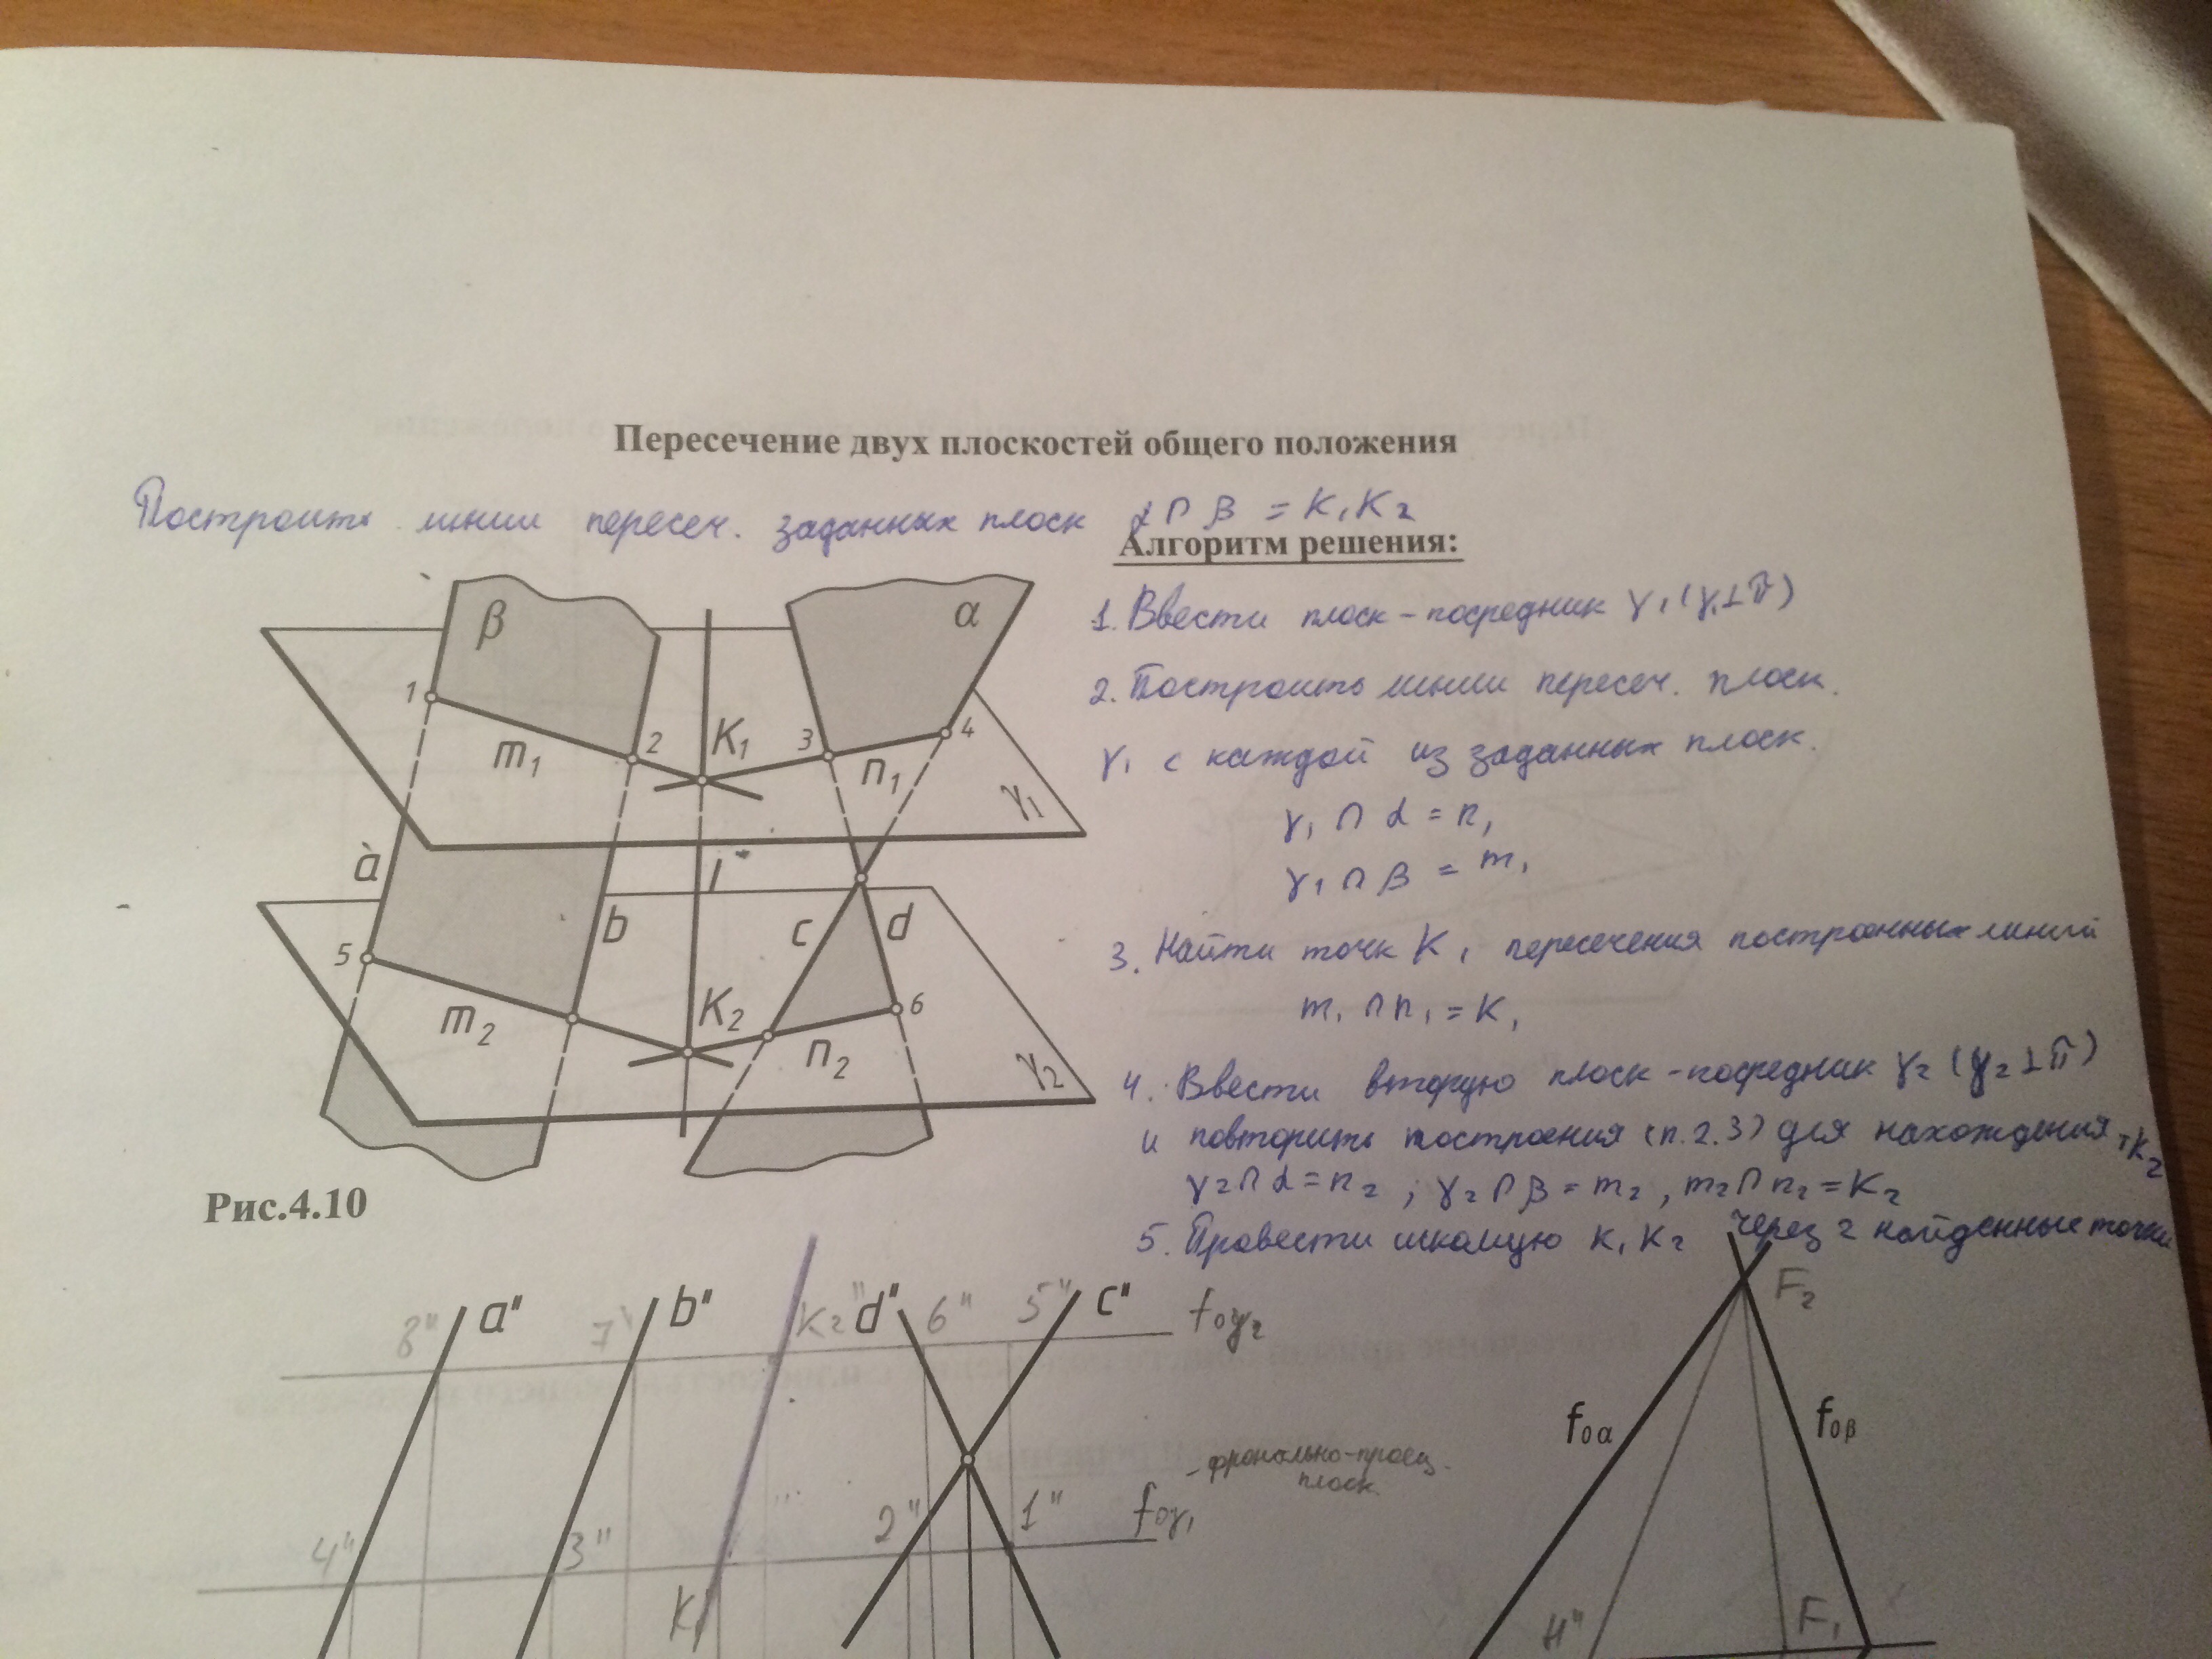 Пересечение двух плоскостей общего положения
Построить линии пересеч. заданных плоск α ∩ β = K₁K₂
Алгоритм решения:
1. Ввести плоск-посредник γ₁ (γ₁⊥π)
2. Построить линии пересеч. плоск.
γ₁ с каждой из заданных плоск.
γ₁ ∩ α = n₁
γ₁ ∩ β = m₁
3. Найти точк K₁ пересечения построенных линий
m₁ ∩ n₁ = K₁
4. Ввести вторую плоск-посредник γ₂ (γ₂⊥π)
и повторить построения (п.2.3) для нахождения т K₂
γ₂ ∩ α = n₂ ; γ₂ ∩ β = m₂ , m₂ ∩ n₂ = K₂
5. Провести искомую K₁K₂ через 2 найденные точки
β α
1 2 K₁ 3 4
m₁ n₁ γ₁
a l
5 b c d
m₂ K₂ n₂ 6 γ₂
Рис.4.10
8" a" 7" b" K₂" d" 6" 5" c" f₀γ₂
F₂
f₀α f₀β
- фронально-проец.
плоск.
4" 3" 2" 1" f₀γ₁
K₁ H" F₁